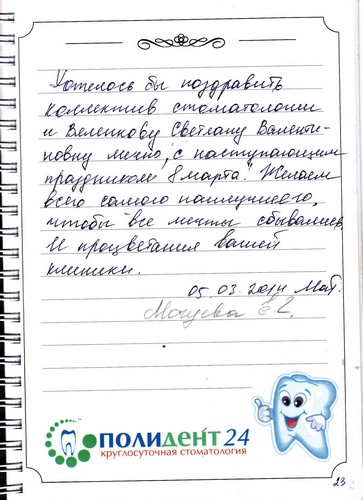 Хотелось бы поздравить
коллектив стоматологии
и Беленкову Светлану Валенти-
новну лично, с наступающим
праздником 8 марта! Желаем
всего самого наилучшего,
чтобы все мечты сбывались,
и процветания вашей
клиники.
05.03.2014
ПОЛИДЕНТ 24
круглосуточная стоматология
23